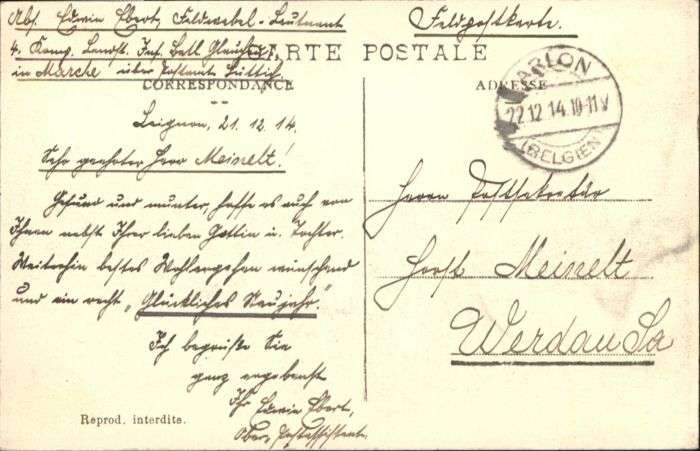 Abs. Edwin Ebert, Feldwebel-Leutnant
4. Komp. Landst. Inf. Batl. Glauchau
in Marche über Postamt Lüttich
Feldpostkarte.
CARTE POSTALE
CORRESPONDANCE
ADRESSE
ARLON
22.12.14.10-11V
(BELGIEN)
Leignon, 21.12.14.
Sehr geehrter Herr Meinelt!
Gesund und munter, hoffe es auch von
Ihnen nebst Ihrer lieben Gattin u. Tochter.
Weiterhin bestes Wohlergehen wünschend
und ein recht "Glückliches Neujahr".
Ich begrüße Sie
ganz ergebenst
Ihr Edwin Ebert,
Ober-Postassistent
Herrn Postsekretär
Meinelt
Werdau Sa
Reprod. interdite.